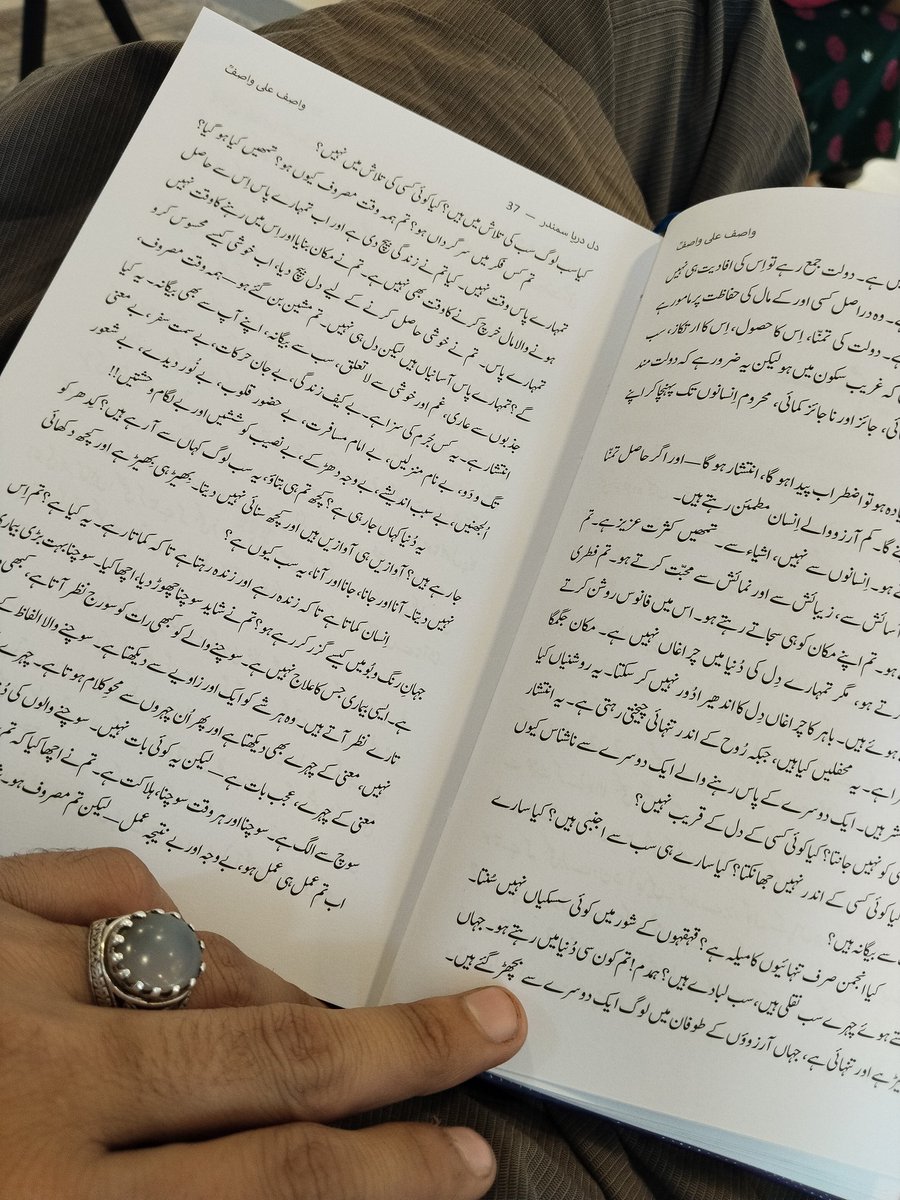 واصف علی واصفؒ
ں ہے۔ دولت جمع رہے تو اِس کی افادیت ہی نہیں
ہے۔ وہ دراصل کسی اور کے مال کی حفاظت پر مامور ہے
ہے۔ دولت کی تمنّا، اِس کا حصول، اِس کا ارتکاز، سب
کہ غریب سکون میں ہو لیکن یہ ضرور ہے کہ دولت مند
ئی، جائز اور ناجائز کمائی، محروم انسانوں تک پہنچا کر اپنے
یادہ ہو تو اضطراب پیدا ہو گا، انتشار ہو گا—اور اگر حاصل تمنّا
ئے گا۔ کم آرزو والے انسان مطمئن رہتے ہیں۔
ہو۔ اِنسانوں سے نہیں، اشیاء سے۔ تمہیں کثرت عزیز ہے۔ تم
آسائش سے، زیبائش سے اور نمائش سے محبّت کرتے ہو۔ تم فطری
ہو۔ تم اپنے مکان کو ہی سجاتے رہتے ہو۔ اس میں فانوس روشن کرتے
رتے ہو، مگر تمہارے دِل کی دُنیا میں چراغاں نہیں ہے۔ مکان جگمگا
ہوئے ہیں۔ باہر کا چراغاں دِل کا اندھیرا دُور نہیں کر سکتا۔ یہ روشنیاں کیا
را ہے۔ یہ محفلیں کیا ہیں، جبکہ رُوح کے اندر تنہائی چیختی رہتی ہے۔ یہ انتشار
شر ہیں۔ ایک دوسرے کے پاس رہنے والے ایک دوسرے سے ناشناس کیوں
ی کو نہیں جانتا؟ کیا کوئی کسی کے دل کے قریب نہیں؟
کیا کوئی کسی کے اندر نہیں جھانکتا؟ کیا سارے ہی سب سے اجنبی ہیں؟ کیا سارے
سے بیگانہ ہیں؟
کیا انجمن صرف تنہائیوں کا میلہ ہے؟ قہقہوں کے شور میں کوئی سسکیاں نہیں سُنتا۔
تے ہوئے چہرے سب نقلی ہیں، سب لبادے ہیں؟ ہمدم! تم کون سی دُنیا میں رہتے ہو۔ جہاں
یڑ ہے اور تنہائی ہے، جہاں آرزوؤں کے طوفان میں لوگ ایک دوسرے سے بچھڑ گئے ہیں۔
دل دریا سمندر — 37
واصف علی واصفؒ
کیا سب لوگ سب کی تلاش میں ہیں؟ کیا کوئی کسی کی تلاش میں نہیں؟
تم کس فکر میں سرگرداں ہو؟ تم ہمہ وقت مصروف کیوں ہو؟ تمہیں کیا ہو گیا؟
تمہارے پاس وقت نہیں۔ کیا تم نے زندگی بیچ دی ہے اور اب تمہارے پاس اس سے حاصل
ہونے والا مال خرچ کرنے کا وقت بھی نہیں ہے۔ تم نے مکان بنایا اور اِس میں رہنے کا وقت نہیں
تمہارے پاس۔ تم نے خوشی حاصل کرنے کے لیے دل بیچ دیا، اب خوشی کیسے محسوس کرو
گے؟ تمہارے پاس آسانیاں ہیں لیکن دل ہی نہیں۔ تم مشین بن گئے ہو۔ ہمہ وقت مصروف،
جذبوں سے عاری، غم اور خوشی سے لاتعلق، سب سے بیگانہ، اپنے آپ سے بھی بیگانہ۔ یہ کیا
انتشار ہے۔ یہ کس جُرم کی سزا ہے۔ بے کیف زندگی، بے جان حرکات، بے سمت سفر، بے معنی
تگ و دَو، بے نام منزلیں، بے امام مسافرت، بے حضور قلوب، بے نُور دیدے، بے شعور
اُلجھنیں، بے سبب اندیشے، بے وجہ دھڑکے، بے نصیب کوششیں اور بے لگام وحشتیں!!
یہ دُنیا کہاں جا رہی ہے؟ کچھ تم ہی بتاؤ، یہ سب لوگ کہاں سے آ رہے ہیں؟ کدھر کو
جا رہے ہیں؟ آوازیں ہی آوازیں ہیں اور کچھ سنائی نہیں دیتا۔ بھیڑ ہی بھیڑ ہے اور کچھ دکھائی
نہیں دیتا۔ آنا اور جانا، جانا اور آنا، یہ سب کیوں ہے؟
اِنسان کماتا ہے تاکہ زندہ رہے اور زندہ رہتا ہے تاکہ کماتا رہے۔ یہ کیا ہے؟ تم اس
جہانِ رنگ و بُو میں کیسے گزر کر رہے ہو؟ تم نے شاید سوچنا چھوڑ دیا، اچھا کیا۔ سوچنا بہت بڑی بیماری
ہے۔ ایسی بیماری جس کا علاج نہیں ہے۔ سوچنے والے کو کبھی رات کو سورج نظر آتا ہے، کبھی
تارے نظر آتے ہیں۔ وہ ہر شے کو ایک اور زاویے سے دیکھتا ہے۔ سوچنے والا الفاظ کے
نہیں، معنی کے چہرے بھی دیکھتا ہے اور پھر اُن چہروں سے محوِ کلام ہوتا ہے۔ چہرے
معنی کے چہرے، عجب بات ہے—لیکن یہ کوئی بات نہیں۔ سوچنے والوں کی دُ
سوچ سے الگ ہے۔ سوچنا اور ہر وقت سوچنا، ہلاکت ہے۔ تم نے اچھا کیا کہ تم
اب تم عمل ہی عمل ہو، بے وجہ اور بے نتیجہ عمل—لیکن تم مصروف ہو۔